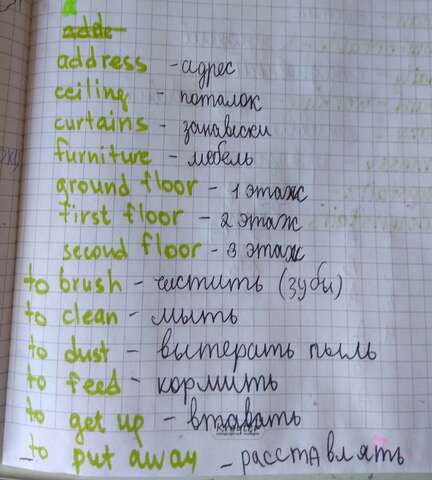 adde
address - адрес
ceiling - поталок
curtains - занависки
furniture - мебель
ground floor - 1 этаж
first floor - 2 этаж
second floor - 3 этаж
to brush - чистить (зубы)
to clean - мыть
to dust - вытерать пыль
to feed - кормить
to get up - втавать
to put away - расставлять